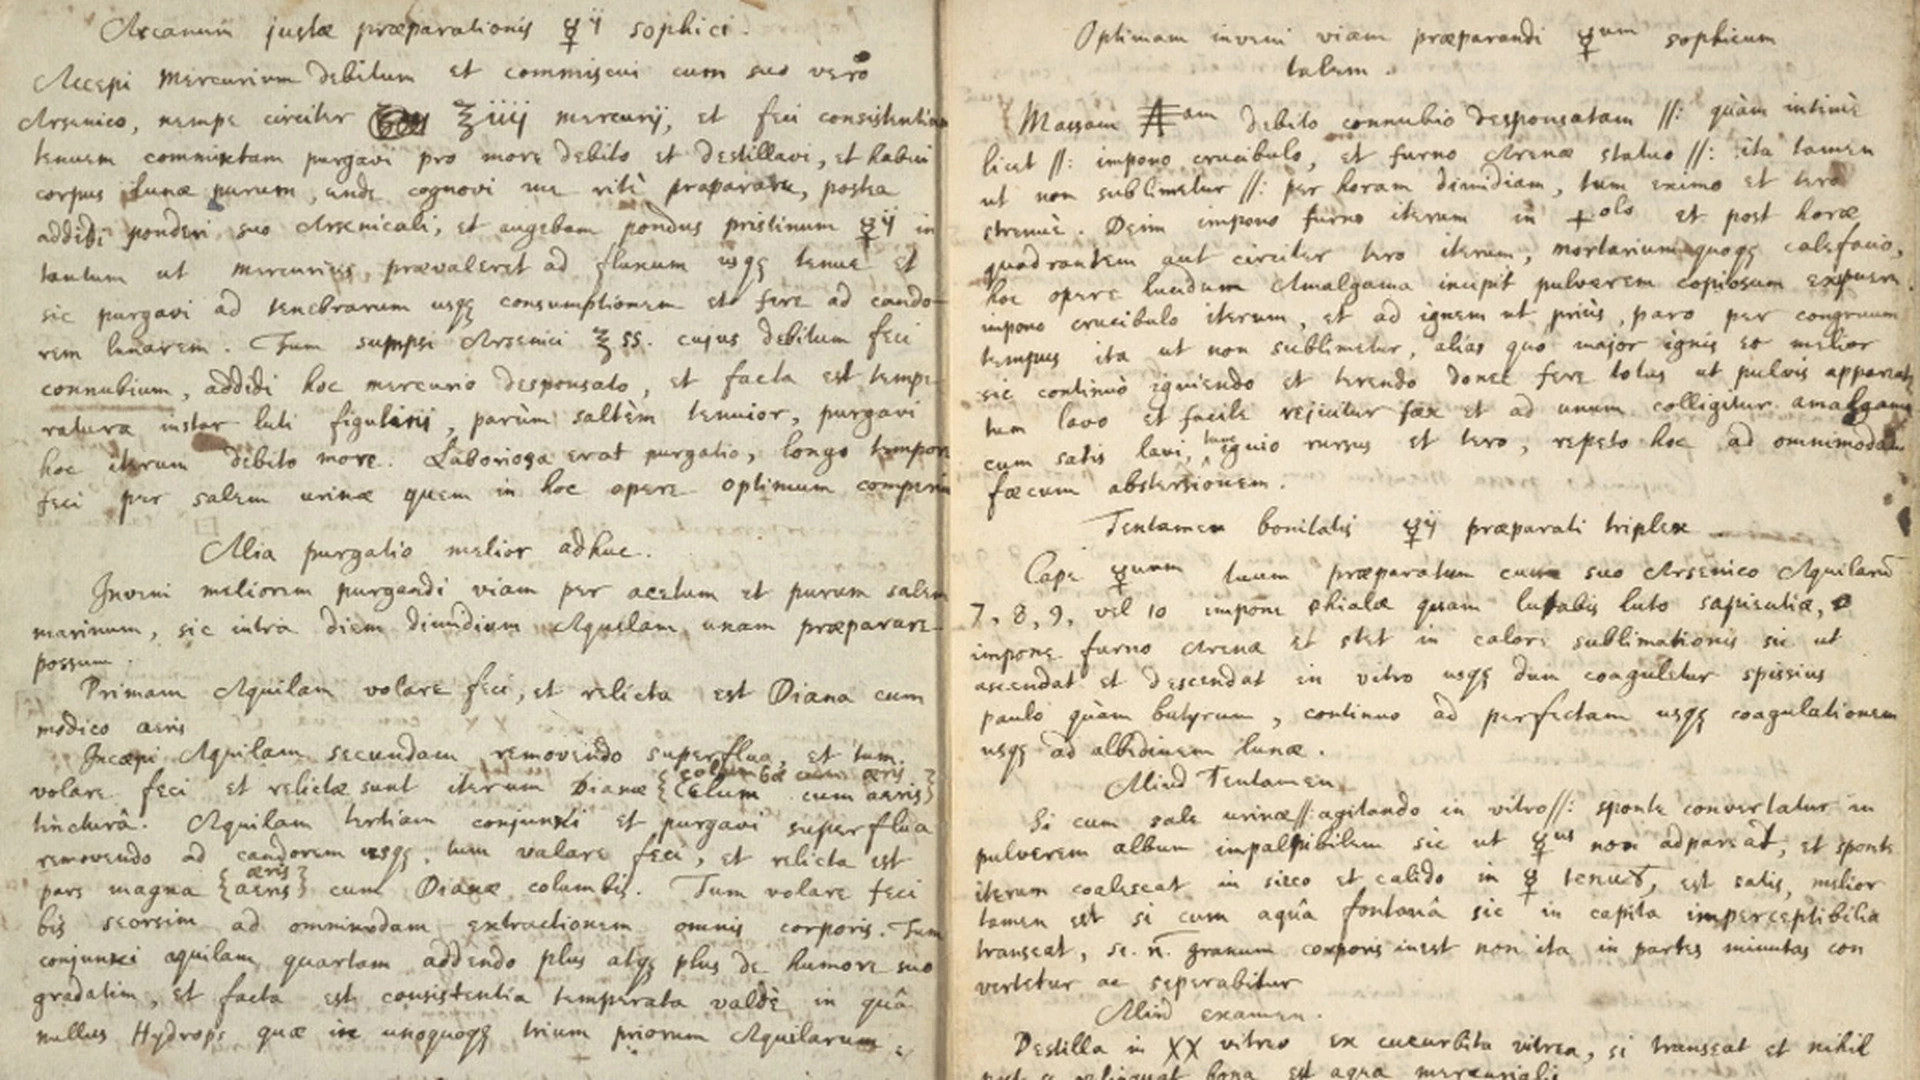 Arcanum justæ præparationis ☿ij sophici.
Accepi Mercurium debitum et commiscui cum suo vero
Arsenico, nempe circiter ʒiiij mercurij, et feci consistentiam
tenuem commixtam purgavi pro more debito et destillavi, et habui
corpus lunæ purum, unde cognovi me ritè præparare, postea
addidi ponderi suo Arsenicali, et augebam pondus pristinum ☿ij in
tantum ut mercurius prævaleret ad fluxum usqꝫ tenue et
sic purgavi ad tenebrarum usqꝫ consumptionem et fere ad cando-
rem lunarem. Tum sumpsi Arsenici ʒss. cujus debitum feci
connubium, addidi hoc mercurio desponsato, et facta est tempe-
ratura instar luti figulini, parùm saltèm tenuior, purgavi
hoc iterum debito more. Laboriosa erat purgatio, longo tempore
feci per salem urinæ quem in hoc opere optimum comperi
Alia purgatio melior adhuc.
Inveni meliorem purgandi viam per acetum et purum salem
marinum, sic intra diem dimidium Aquilam unam præparare
possum.
Primam Aquilam volare feci, et relicta est Diana cum
modico aeris
Incæpi Aquilam secundam removendo superflua, et tum
volare feci et relictæ sunt iterum Dianæ {columbæ cum æris} {Celum cum aeris}
tincturâ. Aquilam tertiam conjunxi et purgavi superflua
removendo ad candorem usqꝫ, tum valare feci, et relicta est
pars magna {æris} {aeris} cum Dianæ columbis. Tum volare feci
bis seorsim ad omnimodam extractionem omnis corporis. Tum
conjunxi aquilam quartam addendo plus atqꝫ plus de humore suo
gradatim, et facta est consistentia temperata valdè in quâ
nullus Hydrops quæ in unoquoqꝫ trium priorum Aquilarum
Optimam inveni viam præparandi ☿um sophicum
talem.
Massam am debito connubio desponsatam //: quàm intimè
licet //: impono crucibulo, et furno Arenæ statuo //: ita tamen
ut non sublimetur //: per horam dimidiam, tum eximo et tero
strenuè. Dein impono furno iterum in +olo et post horæ
quadrantem aut circiter tero iterum, mortarium quoqꝫ calefacio,
hoc opere lucidum Amalgama incipit pulverem copiosum expuere.
impono crucibulo iterum, et ad ignem ut priùs, paro per congruum
tempus ita ut non sublimetur, alias quo major ignis eo melior
sic continuò igniendo et terendo donec fere totus ut pulvis appareat
tum lavo et facile rejicitur fæx et ad unum colligitur amalgama
cum satis lavi, tunc ignio rursus et tero, repeto hoc ad omnimodam
fæcum abstersionem.
Tentamen bonitatis ☿ij præparati triplex
Cape ☿uum tuum præparatum cum suo Arsenico Aquilarū
7, 8, 9, vel 10 impone phialæ quam lutabis luto sapientiæ,
impone furno Arenæ et stet in calore sublimationis sic ut
ascendat et descendat in vitro usqꝫ dum coaguletur spissius
paulo quàm butyrum, continuo ad perfectam usqꝫ coagulationem
usqꝫ ad albedinem lunæ.
Aliud Tentamen
Si cum sale urinæ //: agitando in vitro //: sponte convertatur in
pulverem album impalpibilem sic ut ☿us non adpareat, et sponte
iterum coalescat in sicco et calido in ☿ tenuē, est satis, melior
tamen est si cum aquâ fontanâ sic in capita imperceptibilia
transeat, se. n̄. granum corporis inest non ita in partes minutas con
vertetur ac seperabitur
Aliud examen.
Destilla in XX vitreo ex cucurbita vitrea, si transeat et nihil
relinquat bona est aqua mercurialis